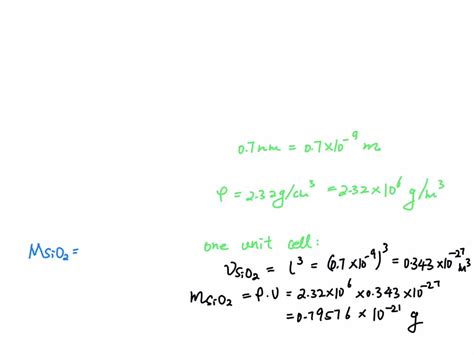 0.7nm = 0.7×10⁻⁹ m
ρ = 2.32g/cm³ = 2.32×10⁶ g/m³
one unit cell:
M_SiO₂ =
V_SiO₂ = l³ = (0.7×10⁻⁹)³ = 0.343×10⁻²⁷ m³
m_SiO₂ = ρ.V = 2.32×10⁶ × 0.343×10⁻²⁷
= 0.79576 × 10⁻²¹ g